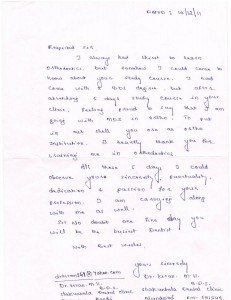 Date : 10/12/11
Respected Sir
I always had thirst to learn
orthodontics, but somehow I could come to
know about your study course. I had
came with a BDS degree, but after
attending 5 days study course in your
clinic, feeling proud to say that I am
going with MDS in ortho. To put
in nut shell you are as ortho
Institution. I heartly thank you for
training me in orthodontics.
All these 5 days, I could
observe your sincerity, punctuality,
dedication & passion for your
profession. I am carrying along
with me as well.
Sir No doubt one fine day you
will be the busiest Dentist.
With Best wishes,
Yours sincerely
Dr. Kiran. H.S.
B.D.S.
dental clinic
B.D.S.
dental clinic